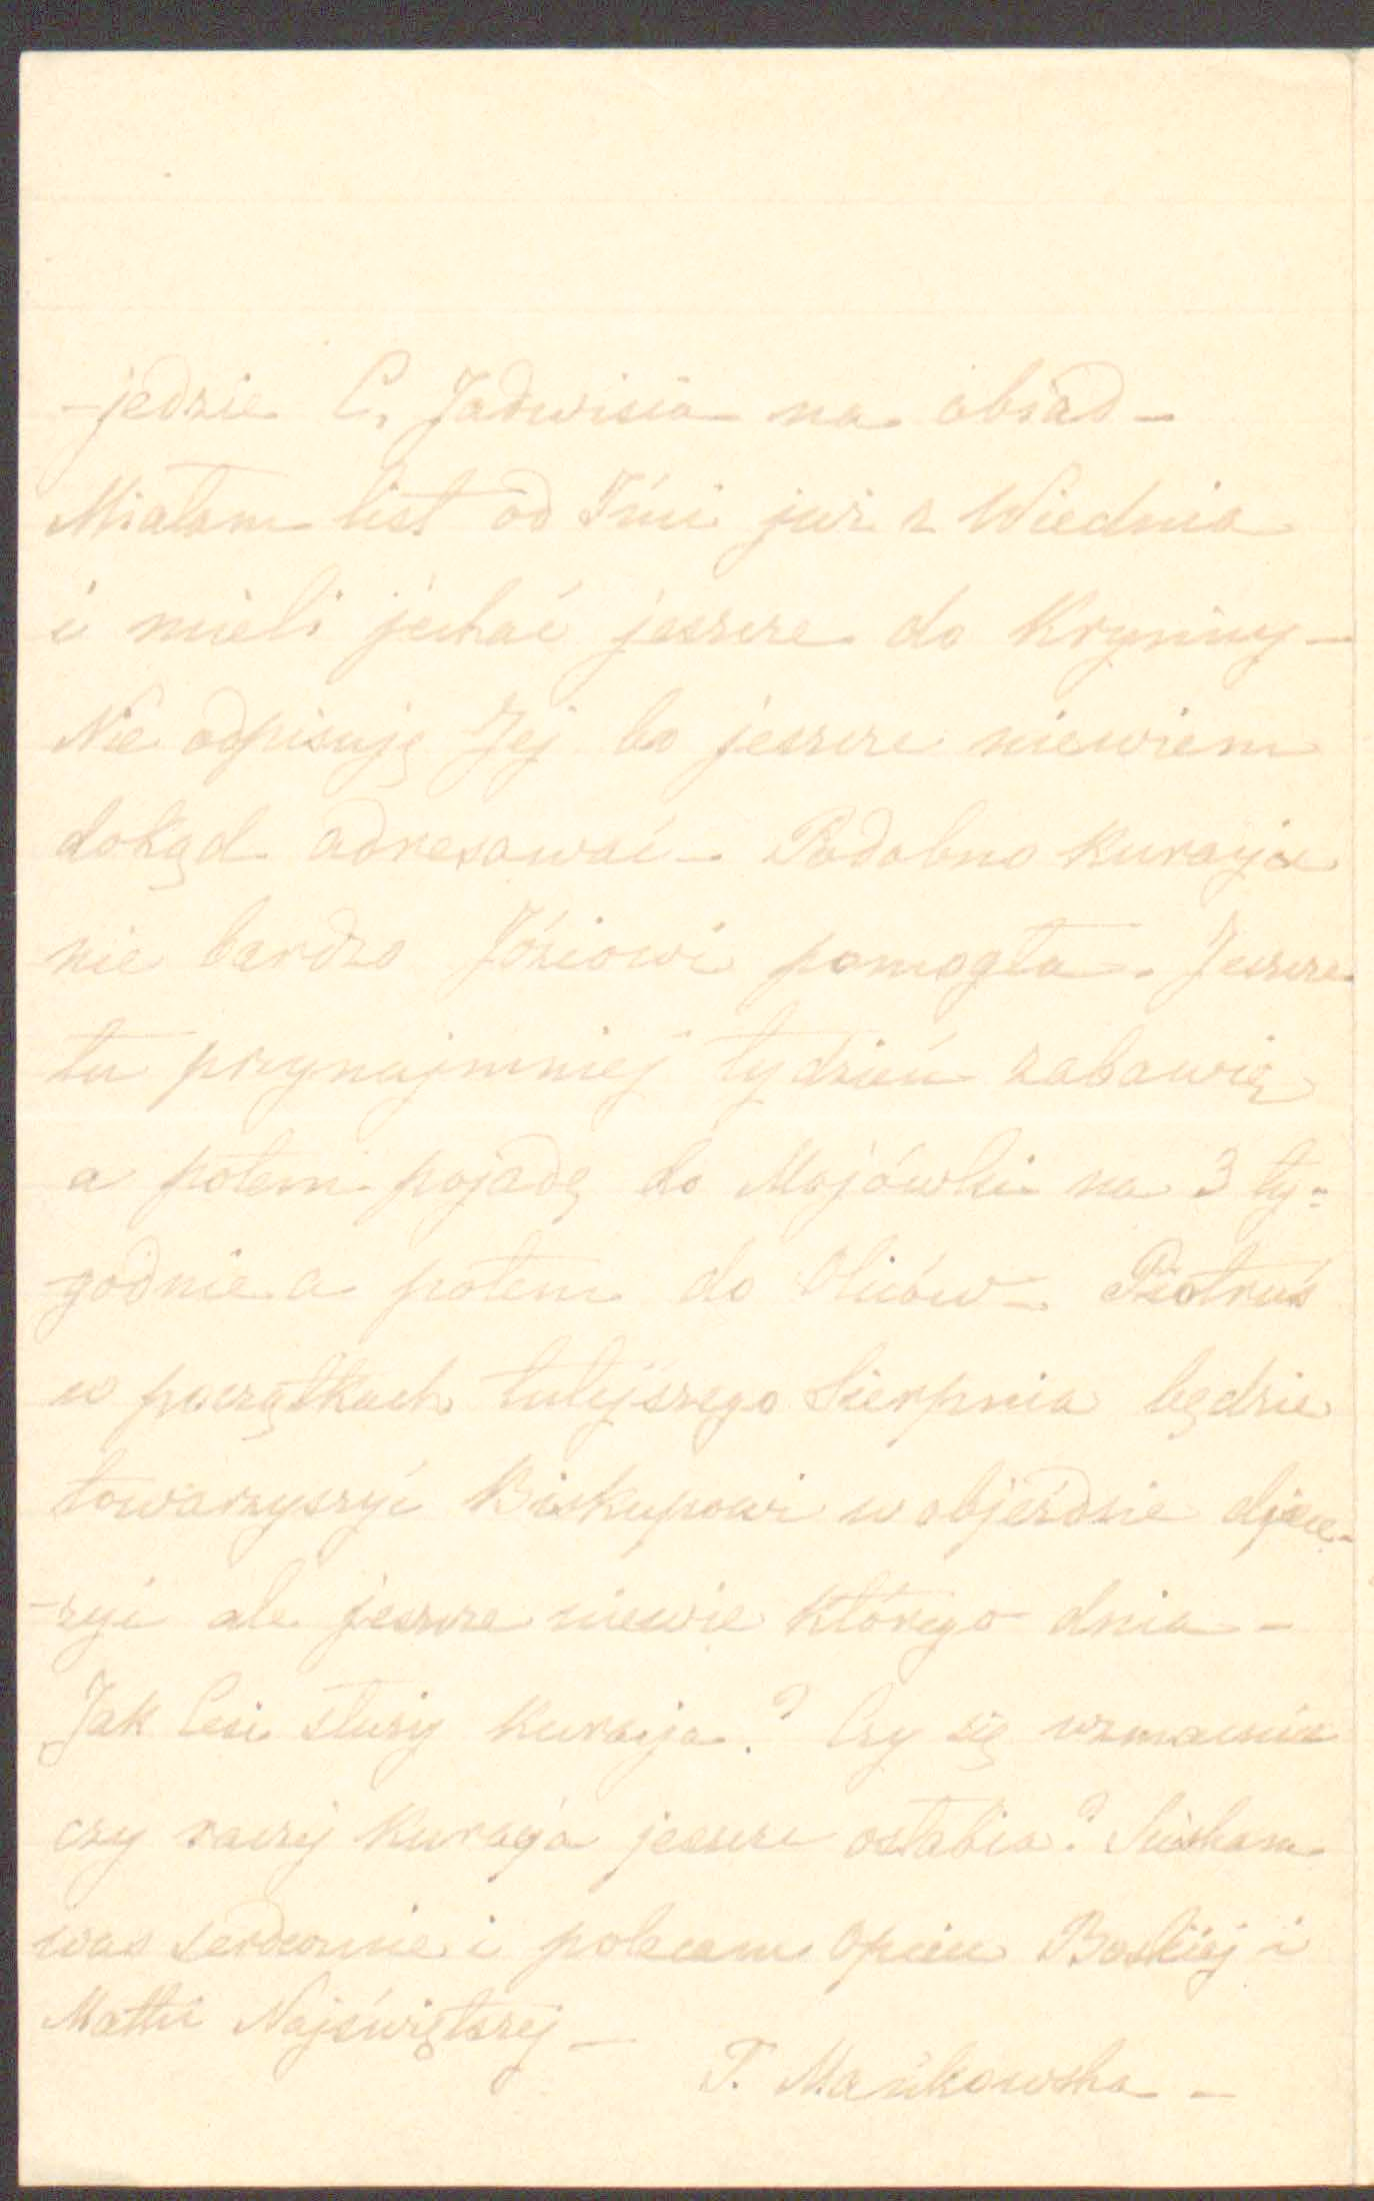 -jedzie C. Jadwisia na obiad -
Miałam list od Imci już z Wiednia
i mieli jechać jeszcze do Krynicy -
Nie odpisuję Jej bo jeszcze niewiem
dokąd adresować - Podobno kuracja
nie bardzo Józiowi pomogła. Jeszcze
tu przynajmniej tydzień zabawię
a potem pojadę do Majówki na 3 ty-
godnie a potem do - Piotruś
w początkach tutejszego Sierpnia będzie
towarzyszyć Biskupowi w objeździe djece-
-zyi ale jeszcze niewie którego dnia -
Jak Cesi służy kuracja? Czy się wzmacnia
czy raczej kuracja jeszcze osłabia? Ściskam
was serdecznie i polecam Opiece Boskiej i
Matki Najświętszej -
T. Mańkowska -